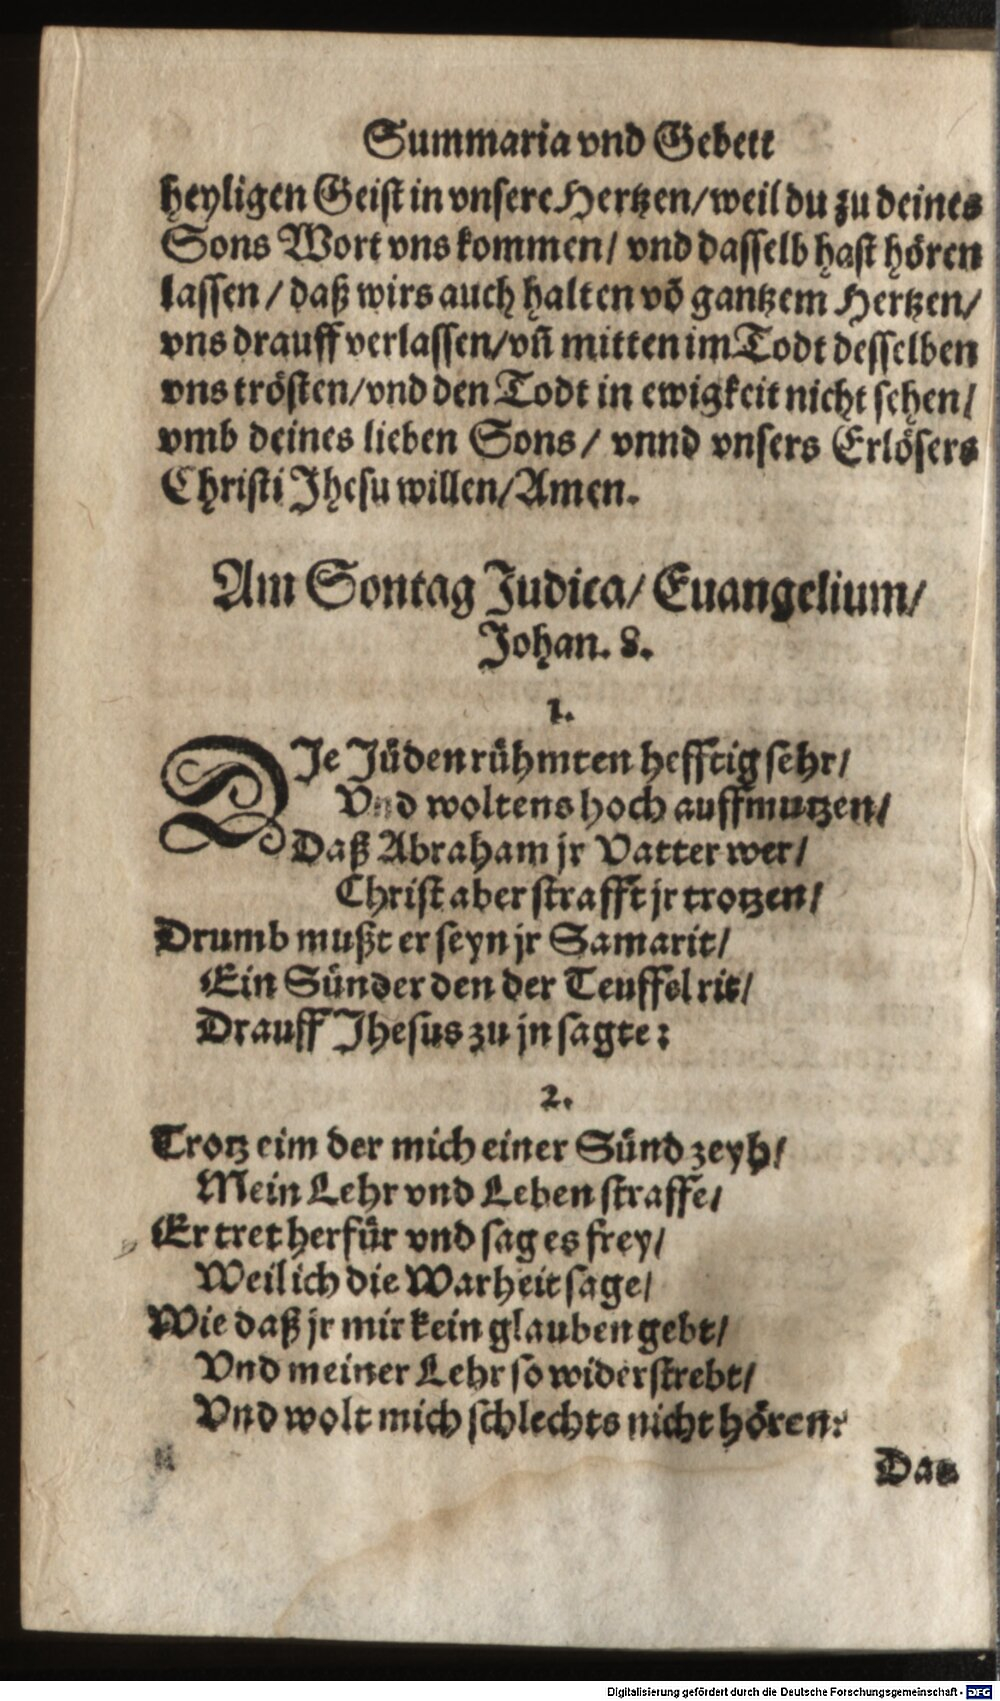 Summaria vnd Gebett
heyligen Geist in vnsere Hertzen/ weil du zu deines
Sons Wort vns kommen/ vnd dasselb hast hören
lassen/ daß wirs auch halten võ gantzem Hertzen/
vns drauff verlassen/ vñ mitten im Todt desselben
vns trösten/ vnd den Todt in ewigkeit nicht sehen/
vmb deines lieben Sons/ vnnd vnsers Erlösers
Christi Jhesu willen/ Amen.
Am Sontag Judica/ Euangelium/
Johan. 8.
1.
DJe Jüden rühmten hefftig sehr/
Vnd woltens hoch auffmutzen/
Daß Abraham jr Vatter wer/
Christ aber strafft jr trotzen/
Drumb mußt er seyn jr Samarit/
Ein Sünder den der Teuffel rit/
Drauff Jhesus zu jn sagte:
2.
Trotz eim der mich einer Sünd zeyh/
Mein Lehr vnd Leben straffe/
Er tret herfür vnd sag es frey/
Weil ich die Warheit sage/
Wie daß jr mir kein glauben gebt/
Vnd meiner Lehr so widerstrebt/
Vnd wolt mich schlechts nicht hören?
Das
Digitalisierung gefördert durch die Deutsche Forschungsgemeinschaft - DFG